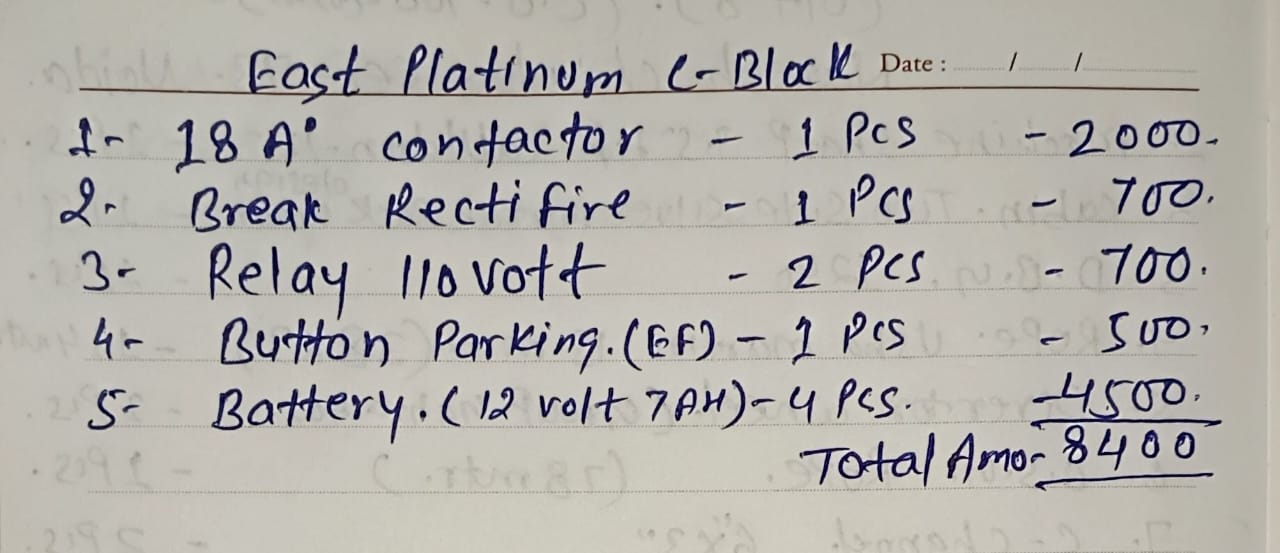 East Platinum C-Block Date : / /
1- 18 A° contactor - 1 Pcs - 2000.
2- Break Rectifire - 1 Pcs - 700.
3- Relay 110 vott - 2 Pcs - 700.
4- Button Parking. (EF) - 1 Pcs - 500.
5- Battery. (12 volt 7AH) - 4 Pcs. - 4500.
Total Amo- 8400